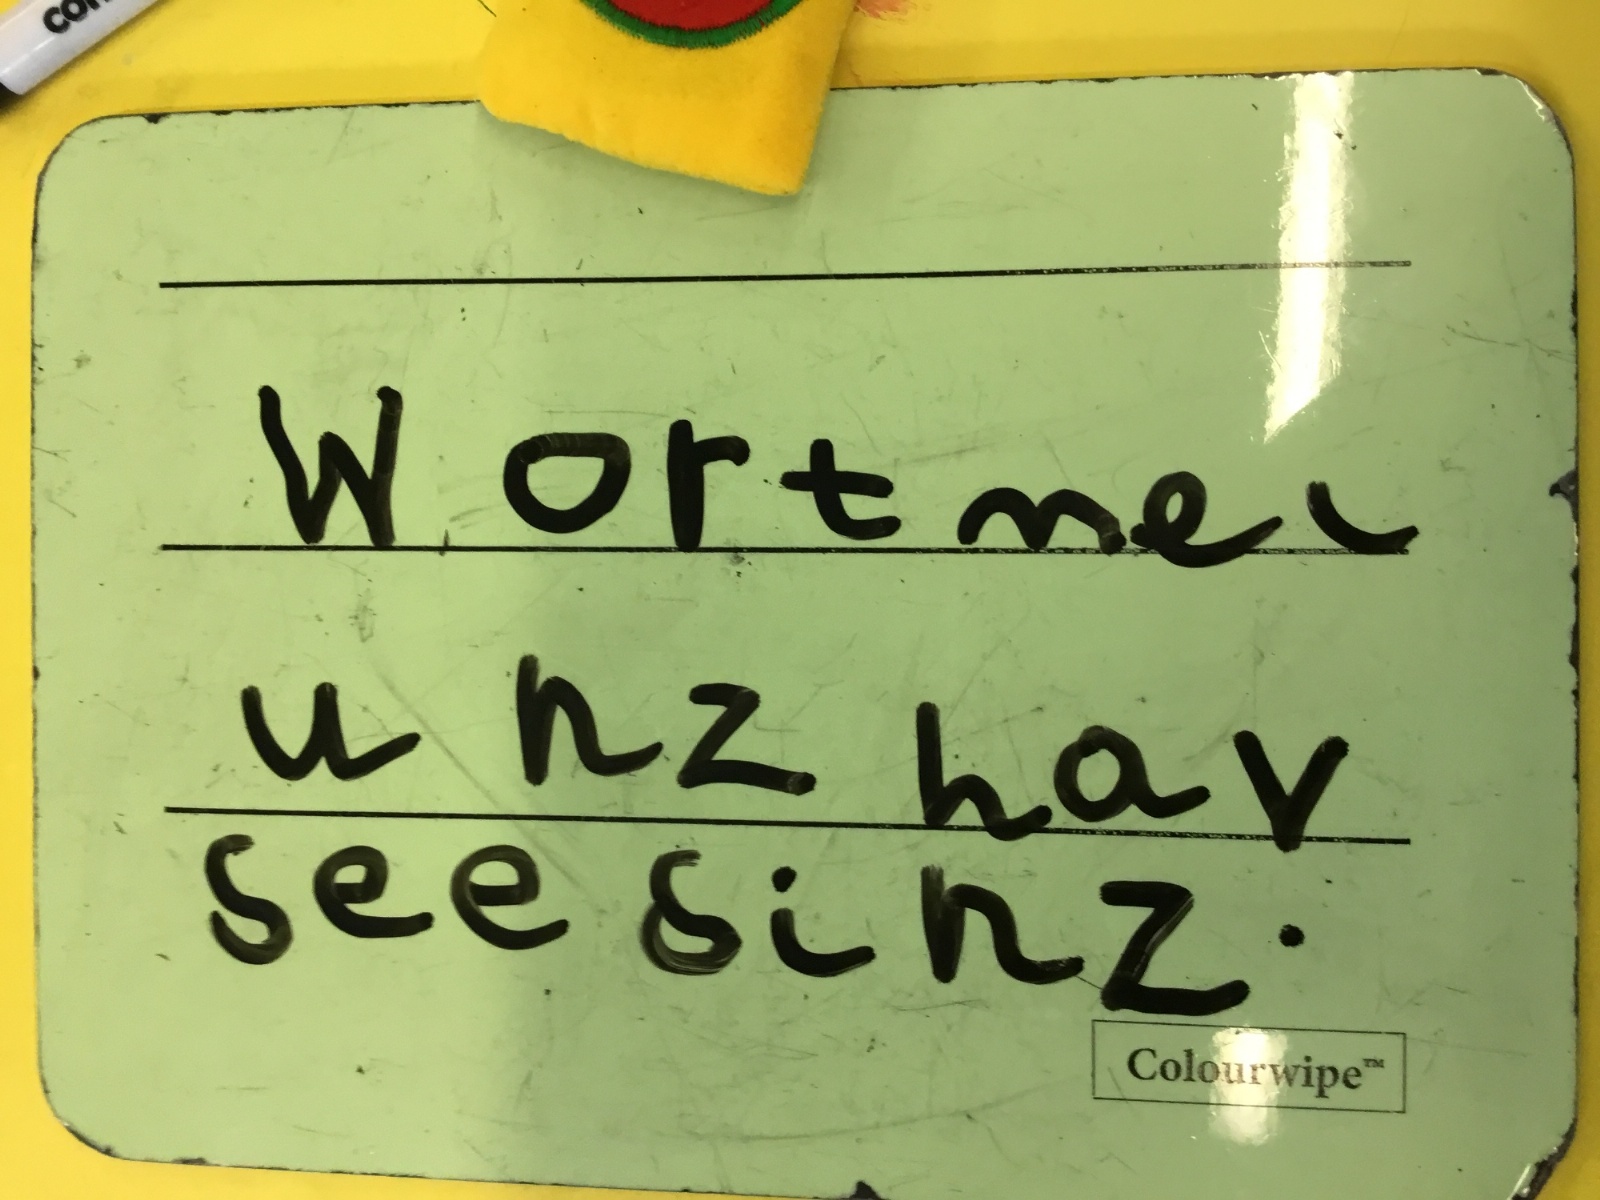 con
Wortmel
unz hav
see sinz.
Colourwipe™